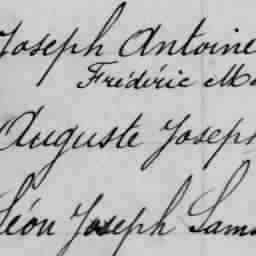 Joseph Antoine
Frédéric
Auguste Joseph
Léon Joseph